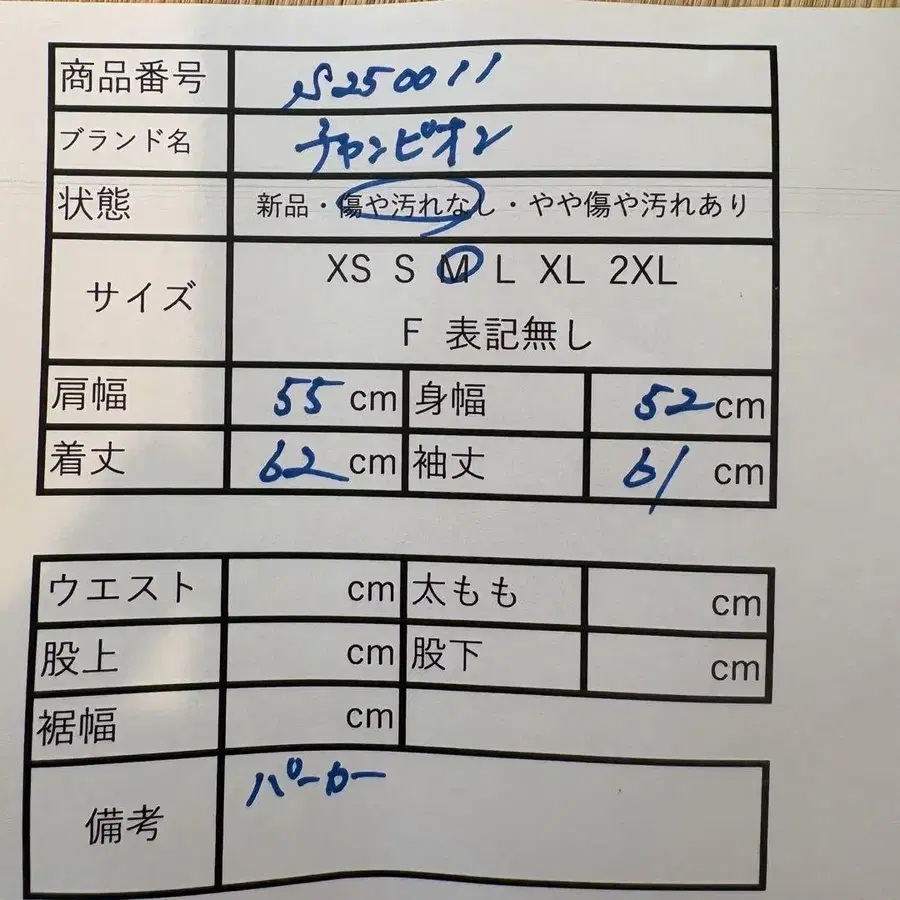 商品番号 S250011
ブランド名 チャンピオン
状態 新品・傷や汚れなし・やや傷や汚れあり
サイズ XS S M L XL 2XL
F 表記無し
肩幅 55 cm 身幅 52 cm
着丈 62 cm 袖丈 61 cm
ウエスト cm 太もも cm
股上 cm 股下 cm
裾幅 cm
備考 パーカー